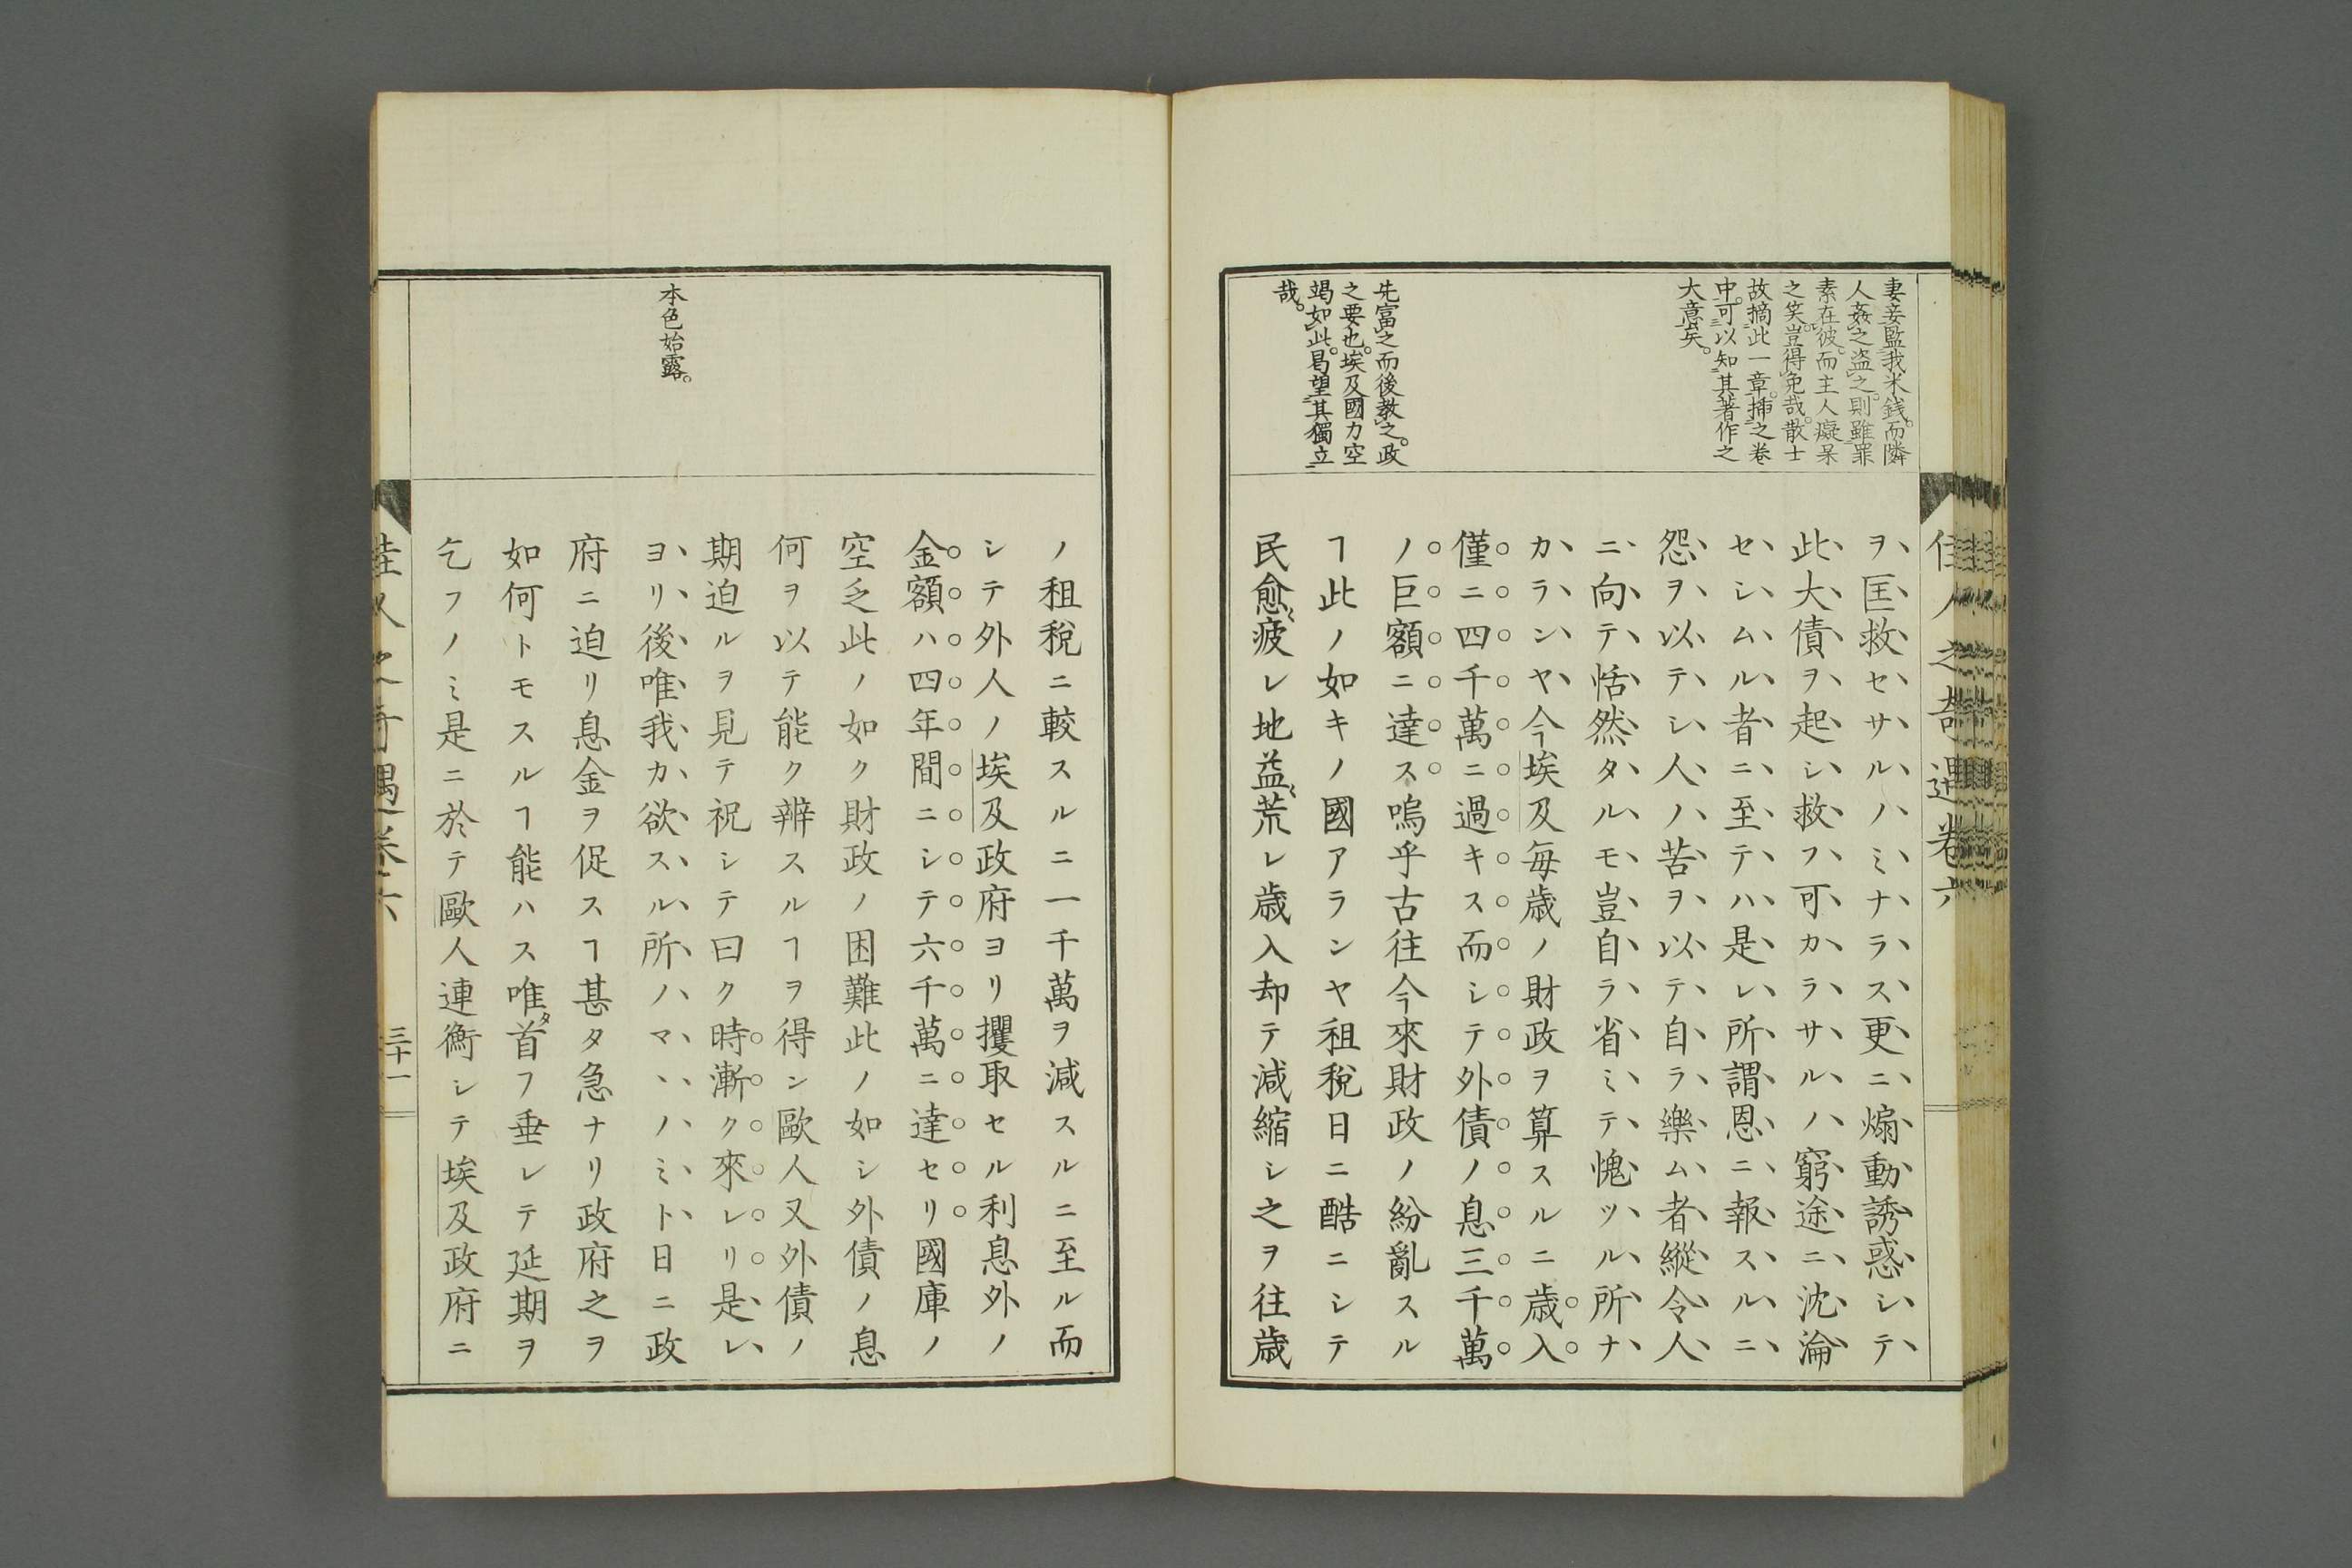 妻妾監我米錢。而隣
人姦之盜之。則雖罪
素在彼。而主人癡呆
之笑。豈得免哉。散士
故摘此一章。挿之卷
中。可以知其著作之
大意矣。
先富之而後教之。政
之要也。埃及國力空
竭如此。曷望其獨立
哉。
ヲ匡救セサルノミナラス更ニ煽動誘惑シテ
此大債ヲ起シ救フ可カラサルノ窮途ニ沈淪
セシムル者ニ至テハ是レ所謂恩ニ報スルニ
怨ヲ以テシ人ノ苦ヲ以テ自ラ樂ム者縱令人
ニ向テ恬然タルモ豈自ラ省ミテ愧ツル所ナ
カランヤ今埃及每歲ノ財政ヲ算スルニ歲入
僅ニ四千萬ニ過キス而シテ外債ノ息三千萬
ノ巨額ニ達ス嗚乎古往今來財政ノ紛亂スル
ヿ此ノ如キノ國アランヤ租稅日ニ酷ニシテ
民愈〻疲レ地益〻荒レ歲入却テ減縮シ之ヲ往歲
佳人之奇遇卷六
本色始露。
ノ租稅ニ較スルニ一千萬ヲ減スルニ至ル而
シテ外人ノ埃及政府ヨリ攫取セル利息外ノ
金額ハ四年間ニシテ六千萬ニ達セリ國庫ノ
空乏此ノ如ク財政ノ困難此ノ如シ外債ノ息
何ヲ以テ能ク辨スルヿヲ得ン歐人又外債ノ
期迫ルヲ見テ祝シテ曰ク時漸ク來レリ是レ
ヨリ後唯我カ欲スル所ノマヽノミト日ニ政
府ニ迫リ息金ヲ促スヿ甚タ急ナリ政府之ヲ
如何トモスルヿ能ハス唯タ首フ垂レテ延期ヲ
乞フノミ是ニ於テ歐人連衡シテ埃及政府ニ
佳人之奇遇卷六 三十一